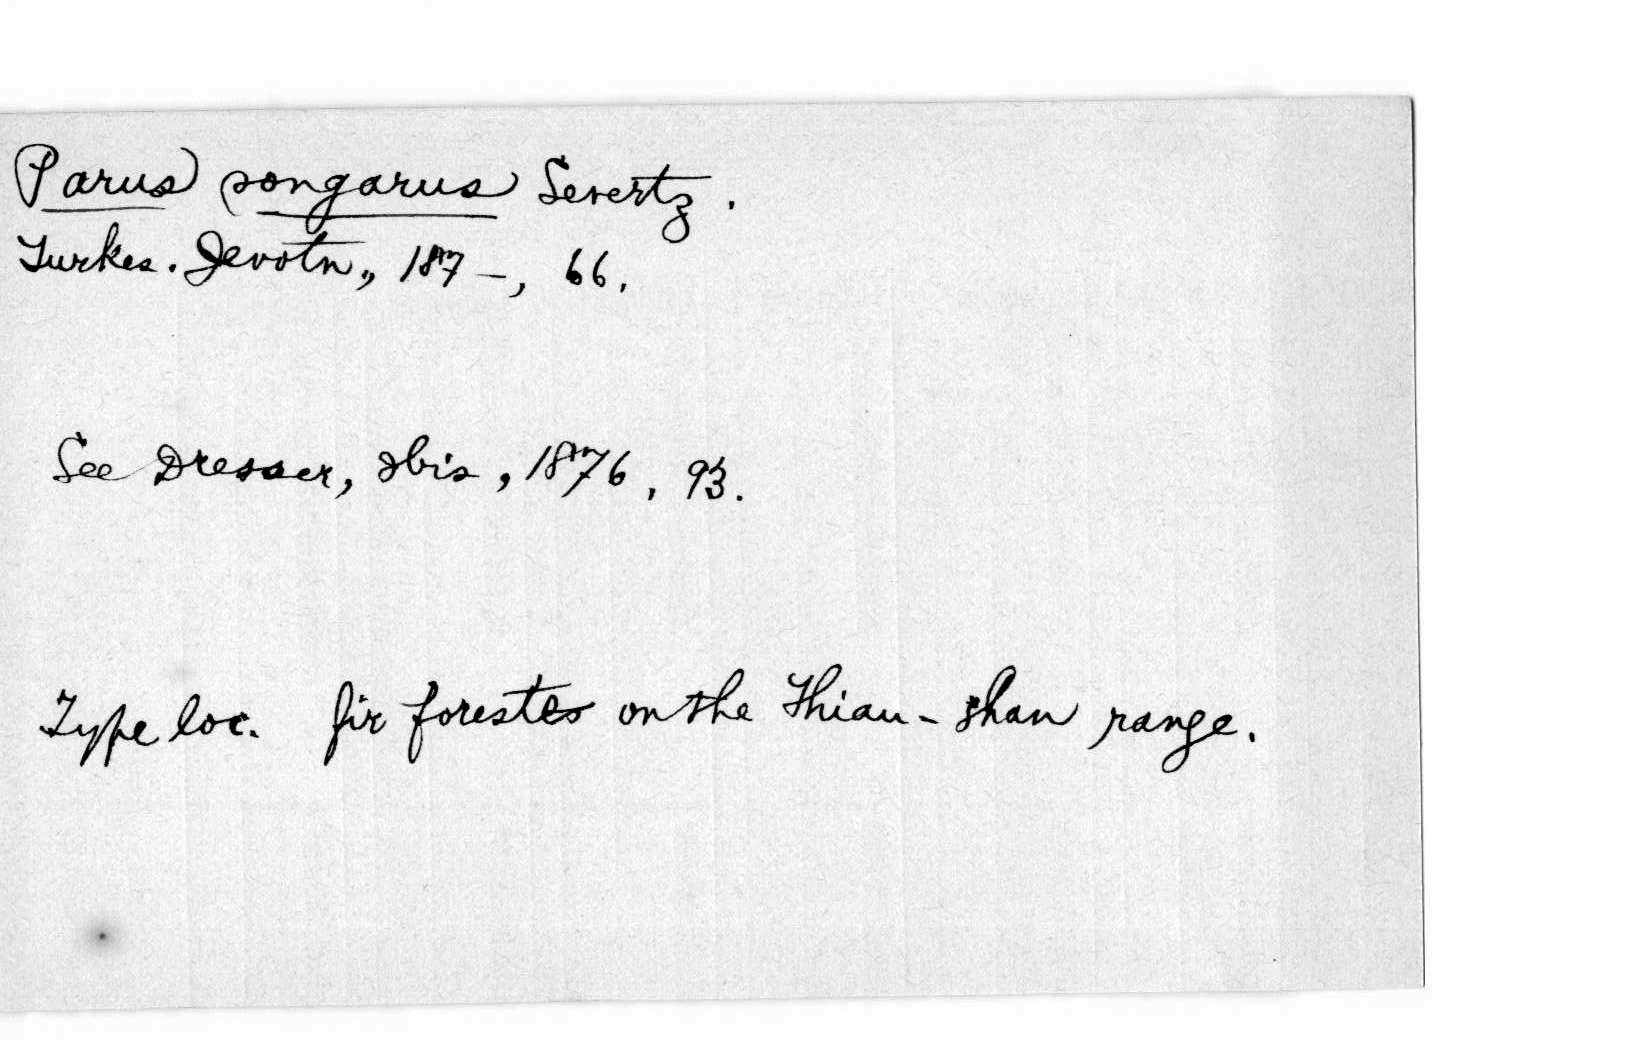 Parus songarus Severtz.
Turkes. Jevotn., 187-, 66.
See Dresser, Ibis, 1876, 93.
Type loc. fir forests on the Thian-shan range.